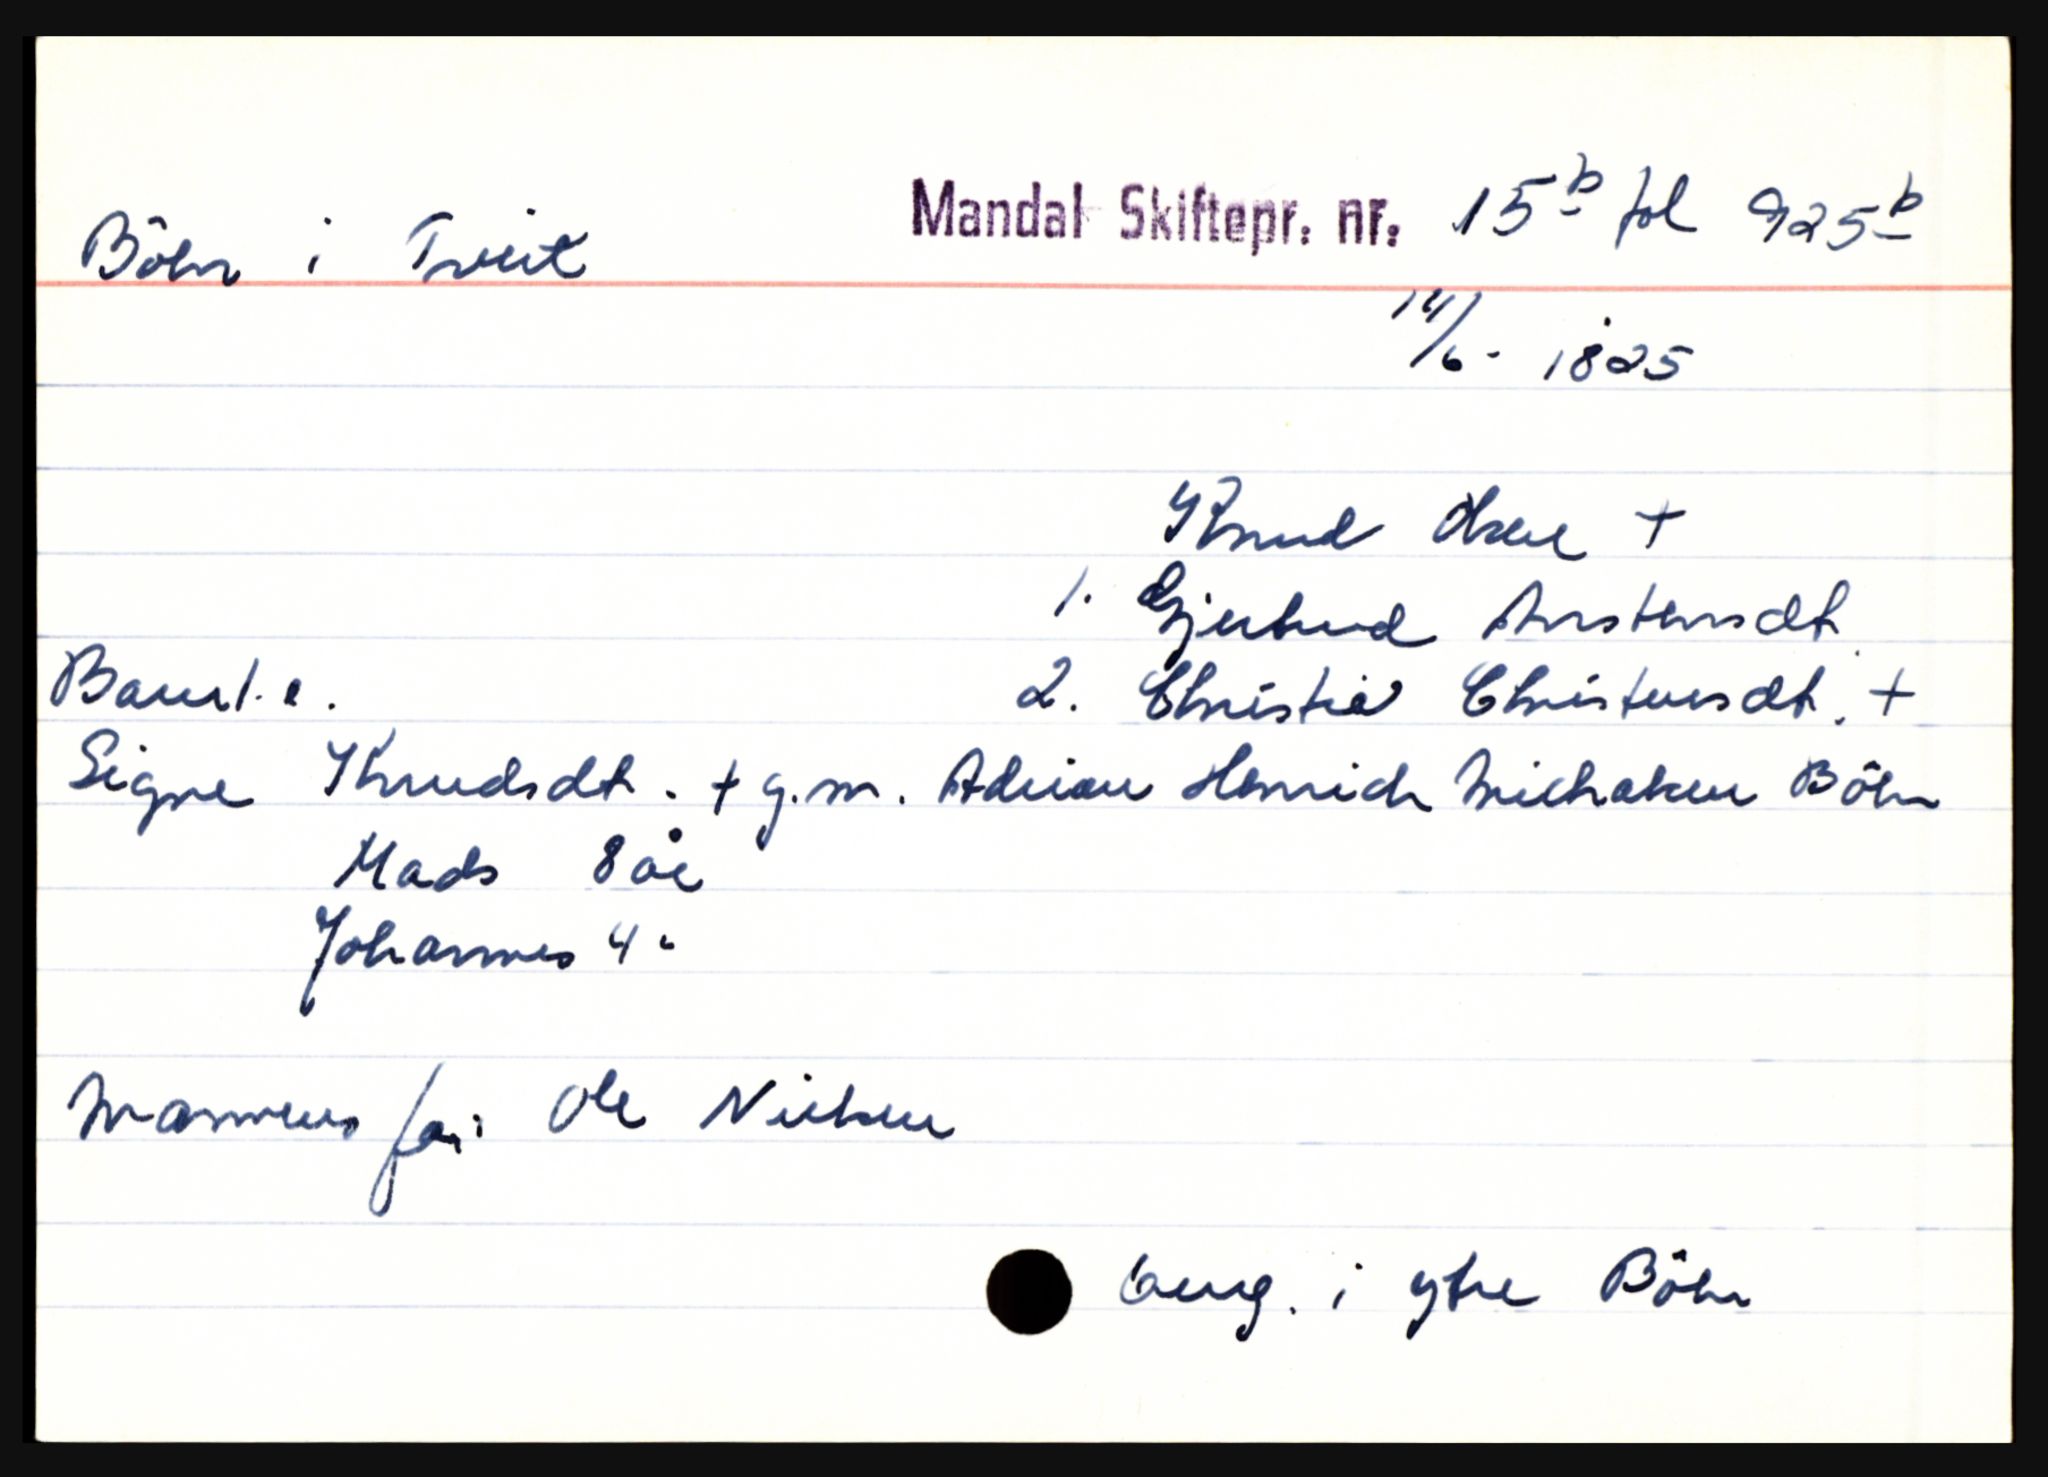 Böen i Tveit
Mandal Skiftepr. nr. 15b fol 925b
14/6 - 1825
Knud Olsen +
1. Gjertrud Anstensdt.
Barn 1. e.
2. Christie Christensdt. +
Signe Knudsdt. + g.m. Adrian Henrich Michalsen Böen
Mads 8 år
Johannes 4 "
Mannens far: Ole Nielsen
aug. i ytre Böen